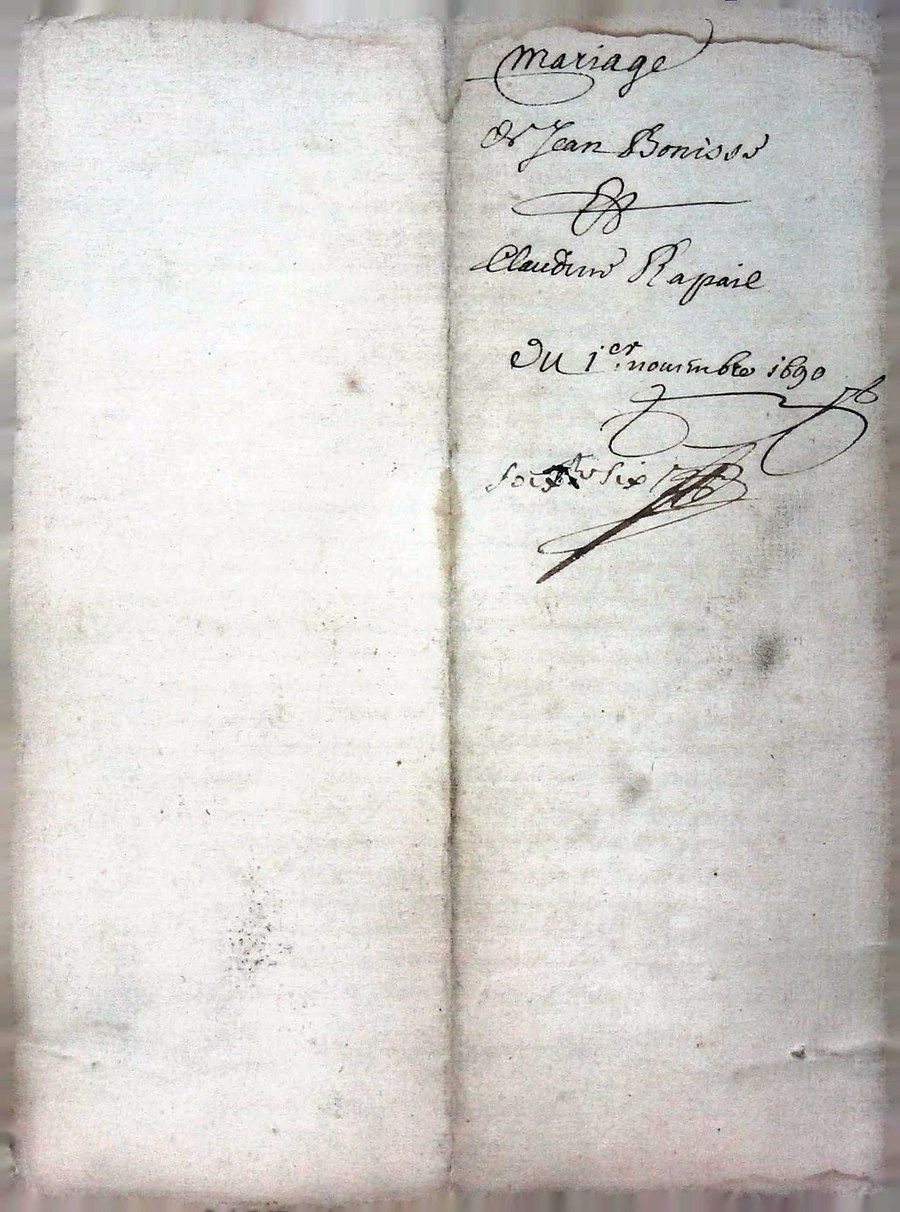 mariage
de Jean Bonisse
&
Claudine Rapail
Du 1er novembre 1690
soixte six